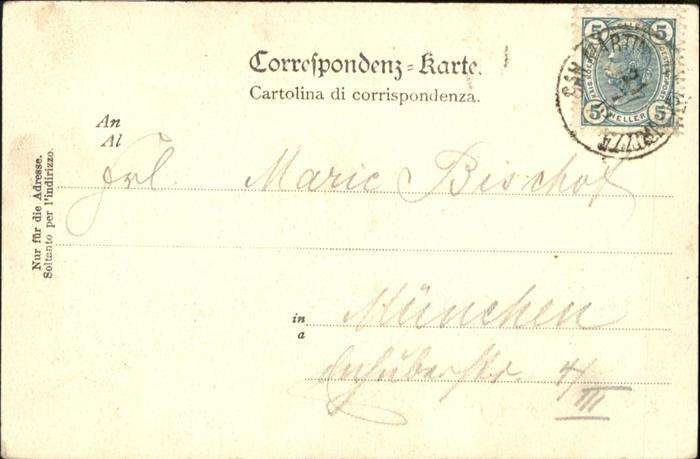 Correspondenz-Karte.
Cartolina di corrispondenza.
5 5
5 HELLER 5
SAN MARTINO
An
Al
Frl. Marie Bischof
Nur für die Adresse.
Soltanto per l'indirizzo.
in
a
München
4/
III